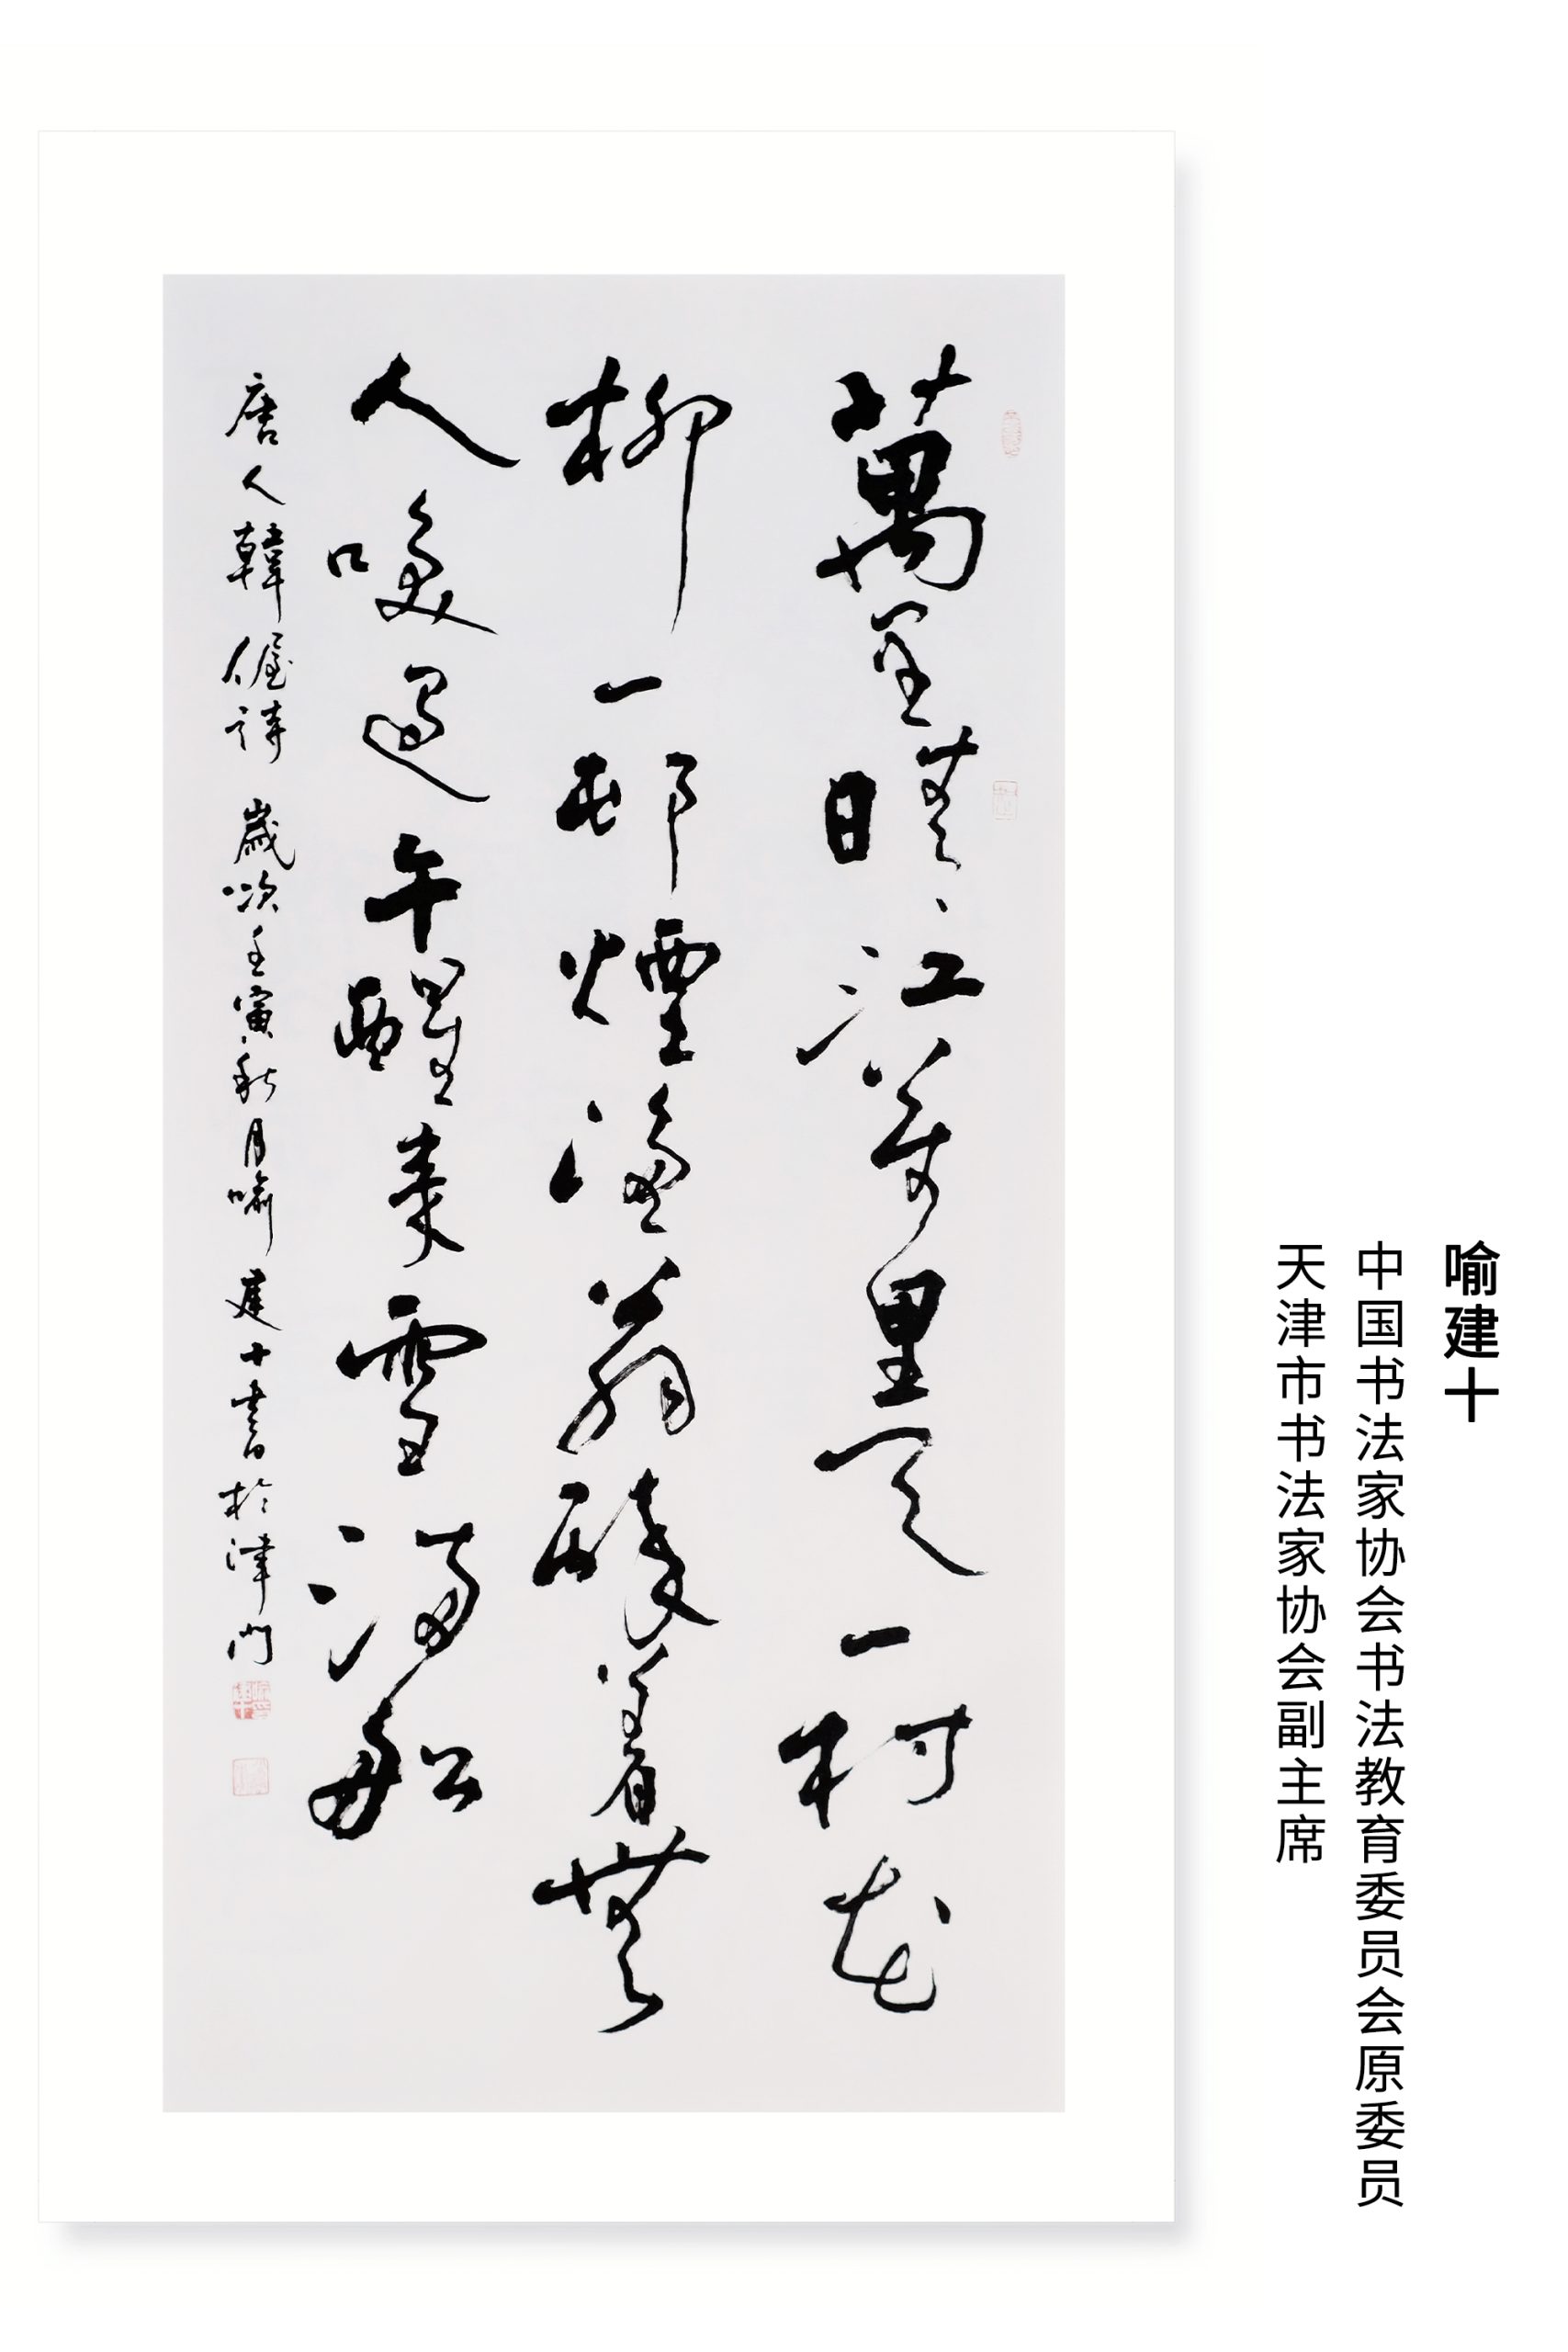 喻建十
中国书法家协会书法教育委员会原委员
天津市书法家协会副主席
萬里晴江萬里天一村花
柳一邨煙漁翁醉着無
人喚過午醒來雪滿船
唐人韓偓詩 歲次壬寅秋月喻建十書於津門